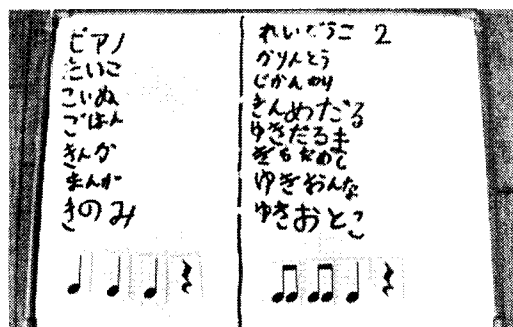 ピアノ
たいこ
こいぬ
ごはん
まんが
きのみ
れいぞうこ 2
かりんとう
じかんわり
きんめだる
ゆきだるま
きもだめし
ゆきおんな
ゆきおとこ